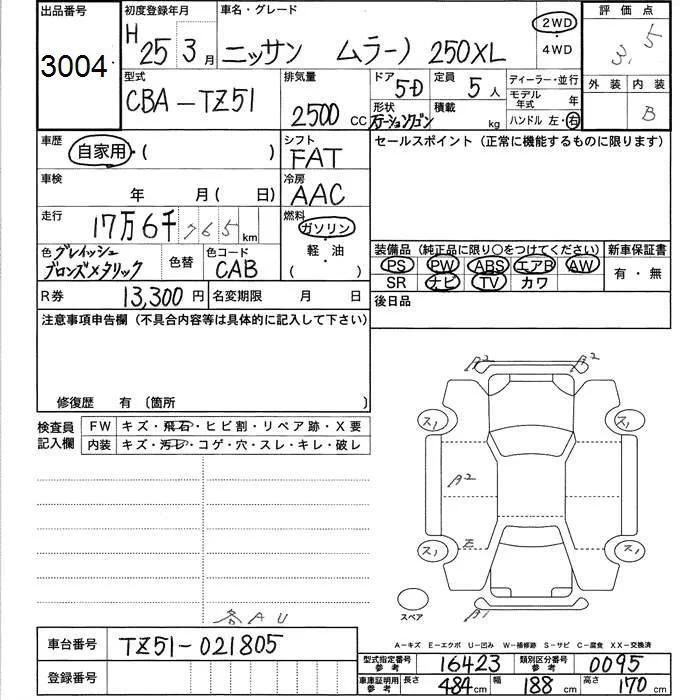 出品番号
3004
初度登録年月
H 25 3 月
車名・グレード
ニッサン ムラーノ 250XL
2WD
4WD
評価点
3.5
外装 内装
B
型式
CBA-TZ51
排気量
2500 CC
ドア
5D
定員
5 人
形状
ステーションワゴン
積載
kg
ディーラー・並行
モデル年式 年
ハンドル 左・右
車歴
自家用・( )
シフト
FAT
セールスポイント (正常に機能するものに限ります)
車検
年 月( 日)
冷房
AAC
走行
17万6千765 km
燃料
ガソリン
軽・油
( )
色 グレイッシュ
ブロンズメタリック
色替
色コード
CAB
装備品 (純正品に限り○をつけてください)
PS PW ABS エアB AW
SR ナビ TV カワ
新車保証書
有・無
R券 13,300 円
名変期限 月 日
後日品
注意事項申告欄 (不具合内容等は具体的に記入して下さい)
修復歴 有 〔箇所 〕
検査員
記入欄
FW キズ・飛石・ヒビ割・リペア跡・X要
内装 キズ・汚レ・コゲ・穴・スレ・キレ・破レ
A2 A2
ス1 ス1
A2
ス1 E ス1
スペア
A1
各AU
A-キズ E-エクボ U-凹み W-補修跡 S-サビ C-腐食 XX-交換済
車台番号 TZ51-021805
登録番号
型式指定番号
参考
16423
類別区分番号
参考
0095
車庫証明用
参考
長さ 484 cm 幅 188 cm 高さ 170 cm